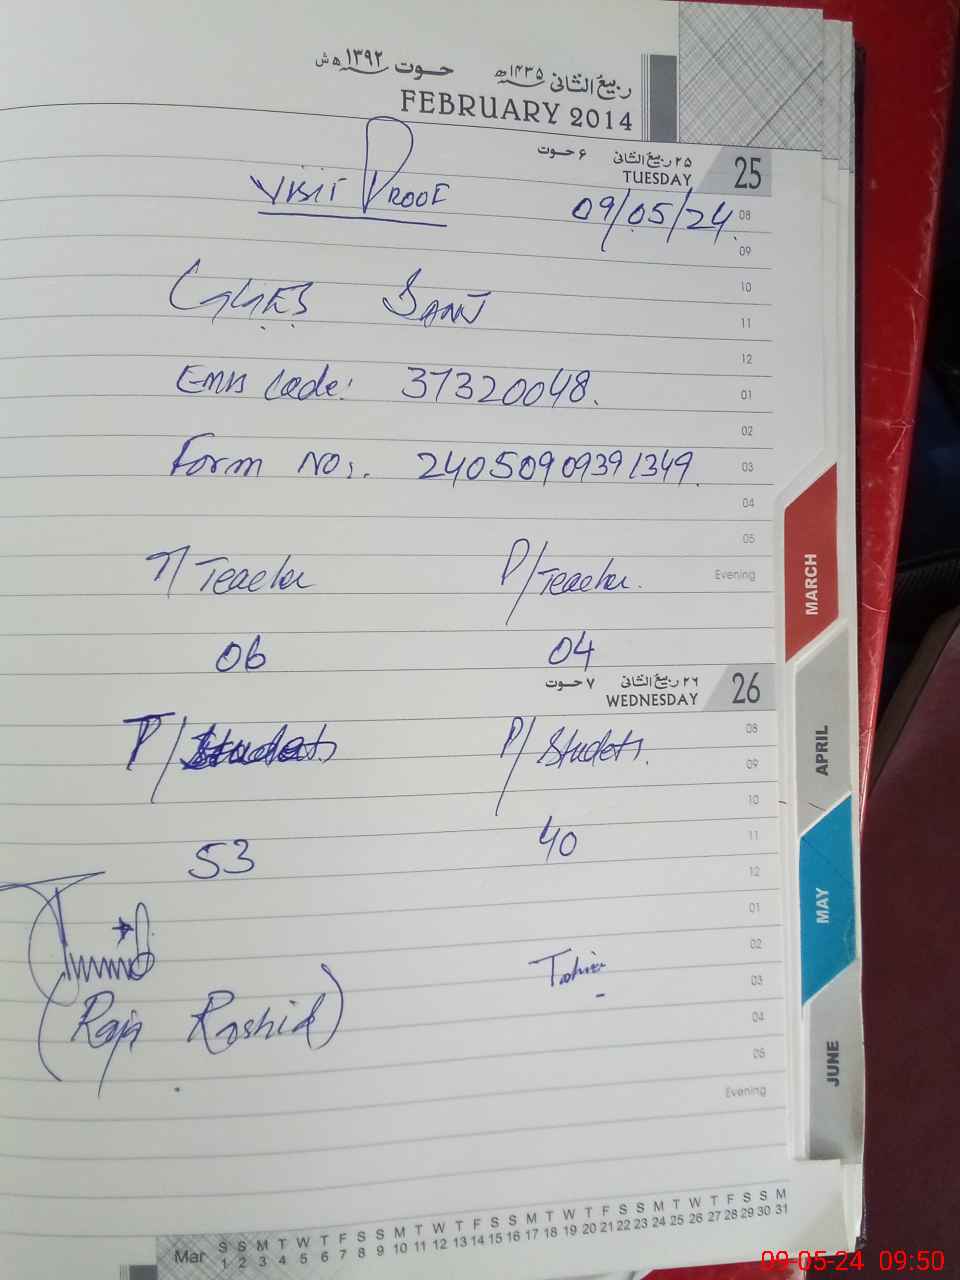 ربیع الثانی ۱۴۳۵ھ حوت ۱۳۹۲ ھ ش
FEBRUARY 2014
۲۵ ربیع الثانی ۶ حوت
TUESDAY 25
VISIT PROOF 09/05/24 08
09
GGES SANJ 10
11
12
Emis Code: 37320048. 01
02
Form No:. 24050909391349 03
04
05
T/Teacher P/Teacher. Evening
06 04
۲۶ ربیع الثانی ۷ حوت
WEDNESDAY 26
T/Students P/Students. 08
09
10
53 40 11
12
01
02
(Raja Rashid) Tahira 03
04
05
Evening
Mar S S M T W T F S S M T W T F S S M T W T F S S M T W T F S S M
1 2 3 4 5 6 7 8 9 10 11 12 13 14 15 16 17 18 19 20 21 22 23 24 25 26 27 28 29 30 31
MARCH
APRIL
MAY
JUNE
09-05-24 09:50